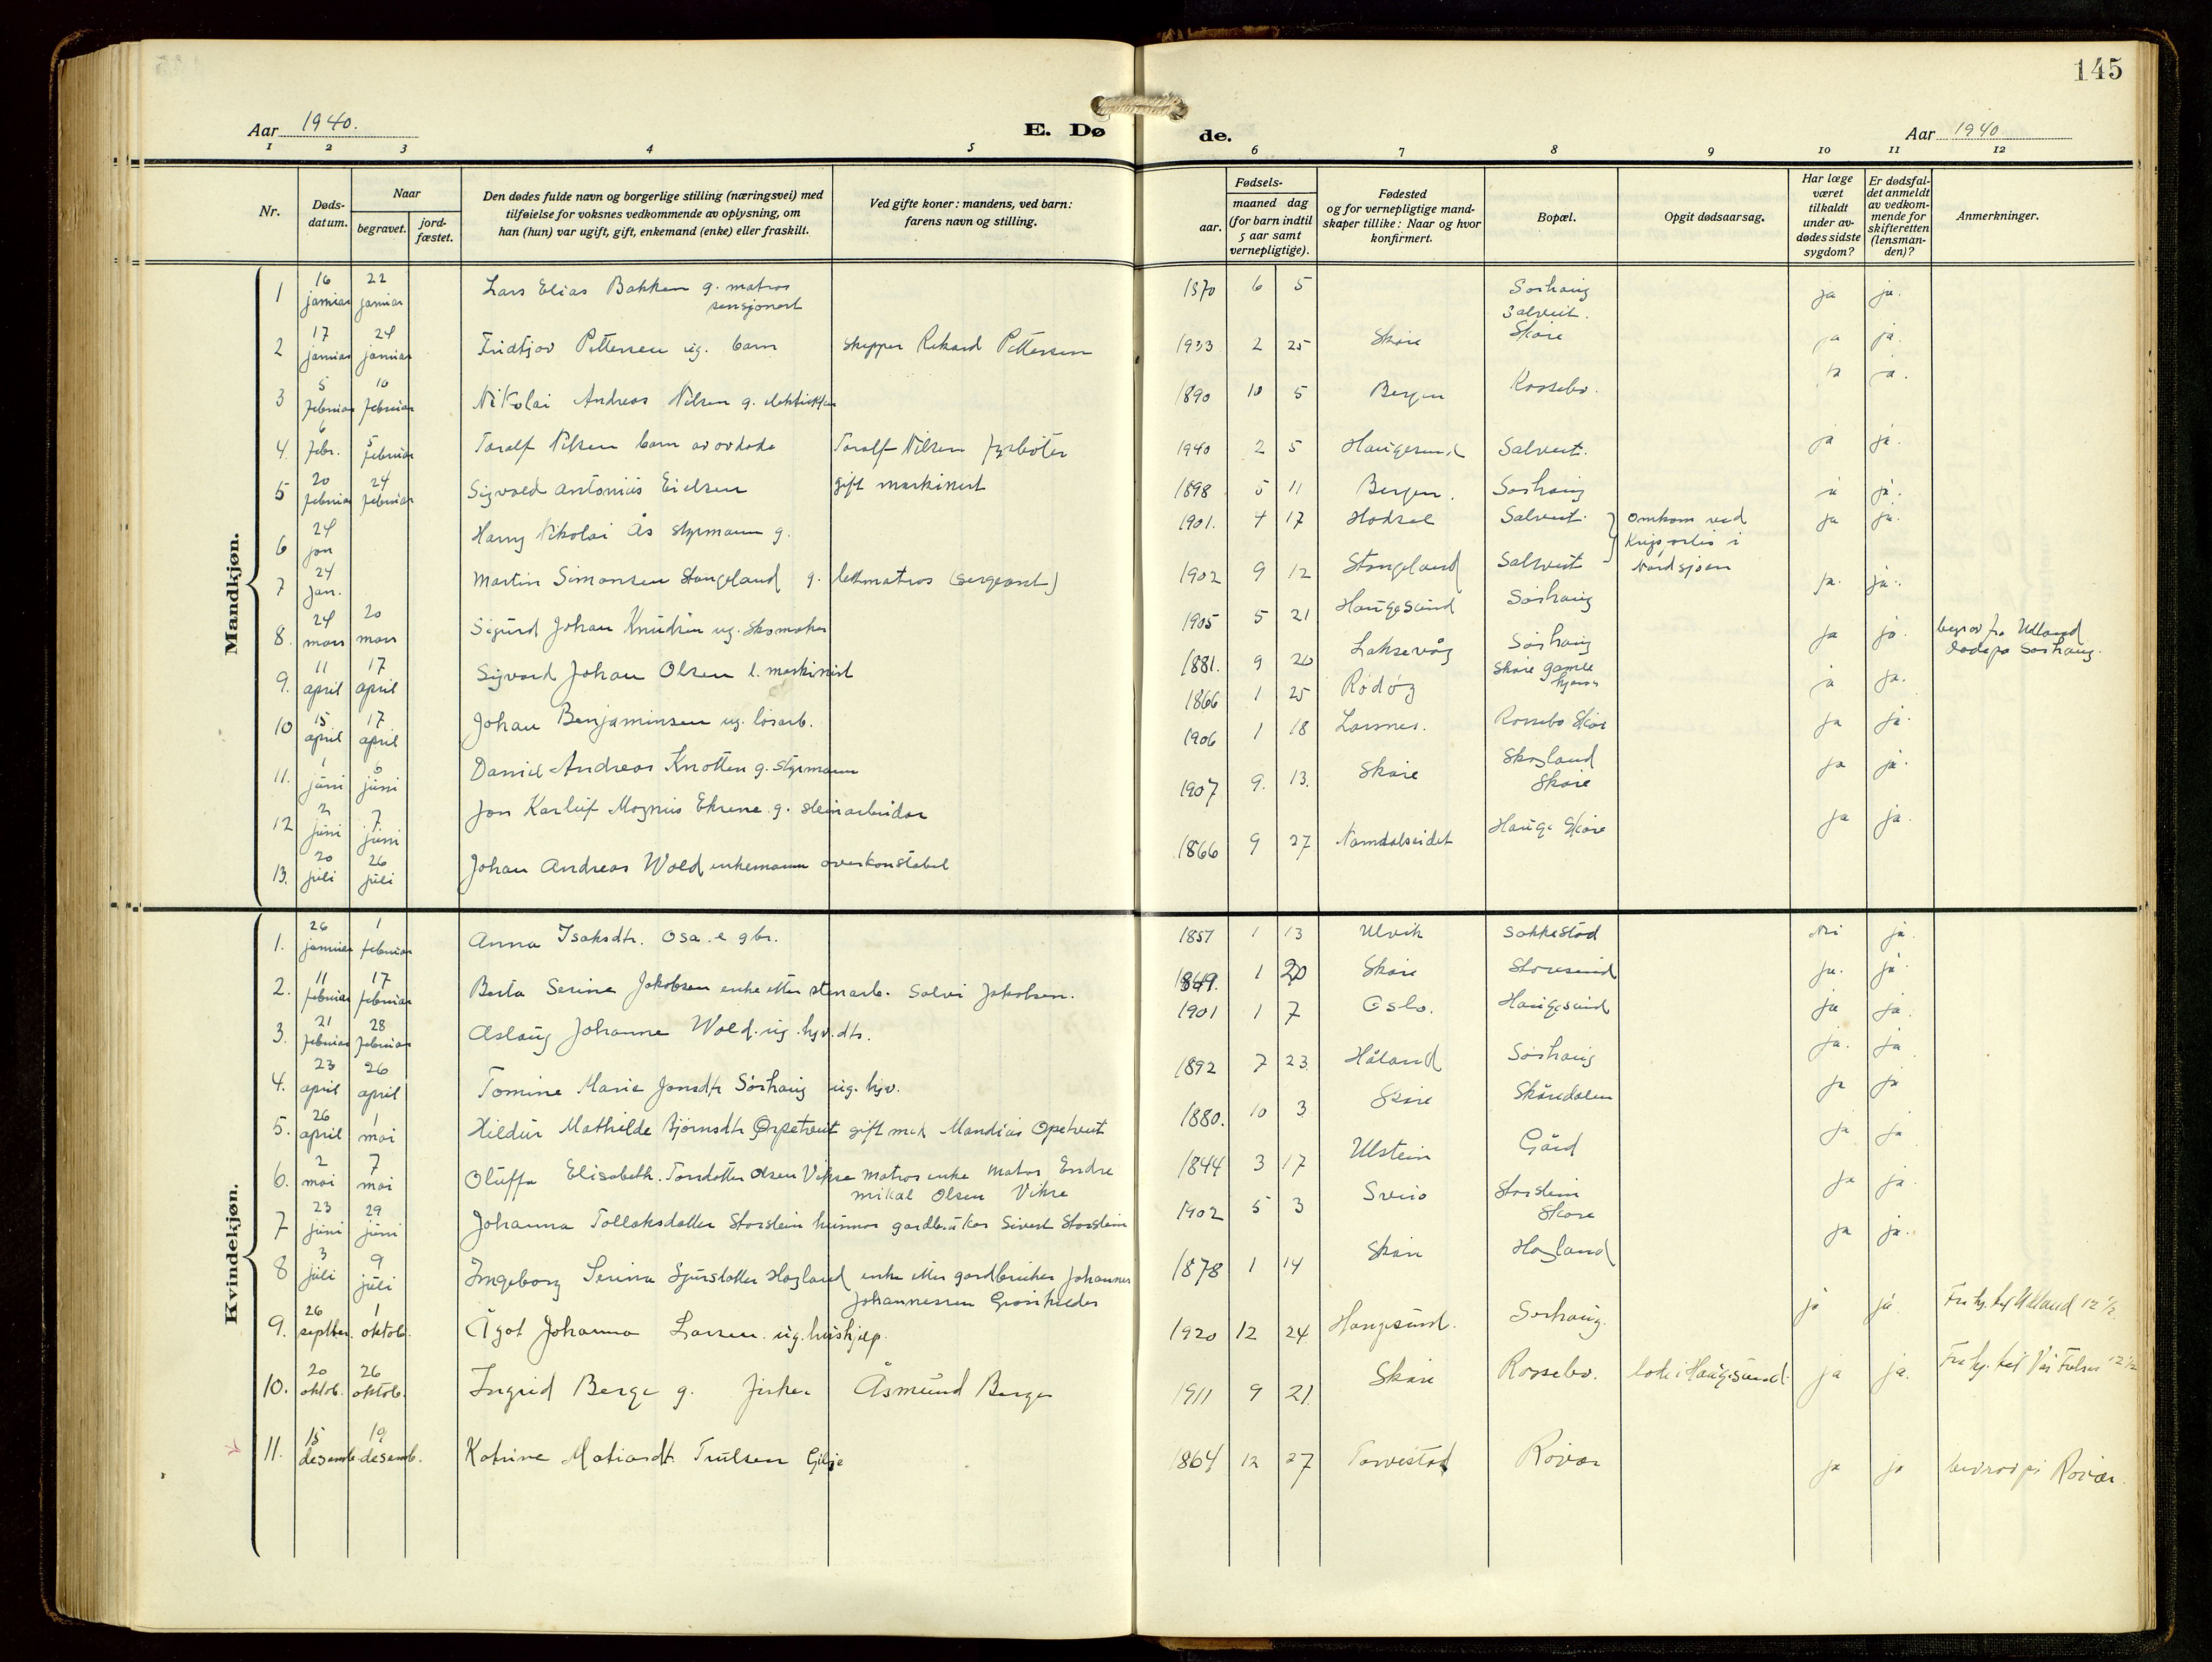 145
Aar 1940.
E. Dø de.
Aar 1940
1 2 3 4 5 6 7 8 9 10 11 12
Nr.
Døds-datum.
Naar
begravet.
jord-fæstet.
Den dødes fulde navn og borgerlige stilling (næringsvei) med
tilføielse for voksnes vedkommende av oplysning, om
han (hun) var ugift, gift, enkemand (enke) eller fraskilt.
Ved gifte koner: mandens, ved barn:
farens navn og stilling.
Fødsels-
aar. maaned dag
(for barn indtil
5 aar samt
vernepligtige).
Fødested
og for vernepligtige mand-
skaper tillike: Naar og hvor
konfirmert.
Bopæl.
Opgit dødsaarsag.
Har læge
været
tilkaldt
under av-
dødes sidste
sygdom?
Er dødsfal-
det anmeldt
av vedkom-
mende for
skifteretten
(lensman-
den)?
Anmerkninger.
Mandkjøn.
1 16 januar 22 januar Lars Elias Bakken g. matros pensjonert 1870 6 5 Sørhaug Salveit. ja ja.
2 17 januar 24 januar Fridtjov Pettersen ug. barn skipper Rikard Pettersen 1933 2 25 Skåre Skåre ja ja.
3 5 februar 10 februar Nikolai Andreas Nilsen g. 1890 10 5 Bergen Rossebø. ja ja.
4. 6 febr. 5 februar Toralf Nilsen barn av Toralf Nilsen fyrbøter 1940 2 5 Haugesund Salveit. ja ja.
5 20 februar 24 februar Sigvald Antonius Eielsen gift maskinist 1898 5 11 Bergen. Sørhaug ja ja.
6 24 jan Harry Nikolai Ås styrmann g. 1901. 4 17 Hadsel Salveit. Omkom ved ja ja.
Krigsforlis i
7 24 jan. Martin Simonsen Stangeland g. lettmatros (sergeant) 1902 9 12 Stangeland Salveit Nordsjøen ja. ja.
8. 24 mars 20 mars Sigurd Johan Knudsen ug. skomaker 1905 5 21 Haugesund Sørhaug ja ja. begrav fra Udland
døde på Sørhaug.
9. 11 april 17 april Sigvard Johan Olsen l. maskinist 1881. 9 20 Laksevåg Sørhaug ja ja.
10 15 april 17 april Johan Benjaminsen ug. løsarb. 1866 1 25 Rødøy Skåre gamle hjem ja ja.
11. 1 juni 6 juni Daniel Andreas Knotten g. styrmann 1906 1 18 Larsnes. Rossebø Skåre ja ja.
12 2 juni 7 juni Jon Karluf Magnus Ekrene g. steinarbeider 1907 9. 13. Skåre Skogland Skåre ja ja.
13. 20 juli 26 juli Johan Andreas Wold enkemann overkonstabel 1866 9 27 Namdalseidet Hauge Skåre
Kvindekjøn.
1. 26 januar 1 februar Anna Isaksdtr. Osa. e gbr. 1857 1 13 Ulvik Sakkestad Nei ja.
2. 11 februar 17 februar Berta Serine Jakobsen enke etter stenarb. Salvi Jakobsen. 1849. 1 20 Skåre Storesund ja. ja.
3. 21 februar 28 februar Aslaug Johanne Wold. ug. hjv. dtr. 1901 1 7 Oslo. Haugesund ja ja.
4. 23 april 26 april Tomine Marie Jonsdtr Sørhaug ug. hjv. 1892 7 23 Håland Sørhaug ja. ja
5. 26 april 1 mai Hildur Mathilde Bjørnsdtr Opetveit gift med Mandius Opetveit 1880. 10 3 Skåre Skåredalen ja ja
6. 2 mai 7 mai Oluffa Elisabeth. Tordatter Olsen Vikse matros enke Matros Endre
Mikal Olsen Vikse 1844 3 17 Ulstein Gård ja ja
7 23 juni 29 juni Johanna Tollaksdatter Storstein husmor gardbruker Sivert Storstein 1902 5 3 Sveio Storstein Skåre ja ja.
8 3 juli 9 juli Ingeborg Serina Sjursdatter Hagland enke etter gardbruker Johannes
Johannessen 1878 1 14 Skåre Hagland ja ja.
9. 26 septbr. 1 oktob. Ågot Johanna Larsen. ug. hushjelp. 1920 12 24 Haugesund. Sørhaug. ja ja. Fra kp. til Udland 12 1/2
10. 20 oktob. 26 oktob. Ingrid Berge g. fisker Åsmund Berge 1911 9 21. Skåre Rossebø. døde i Haugesund. ja ja. Fra kp. til Vår Frelser 12 1/2
11. 15 desemb. 19 desemb. Katrine Matiasdtr Trulsen Gilje 1864 12 27 Torvestad Røvær ja ja begravd på Røvær.